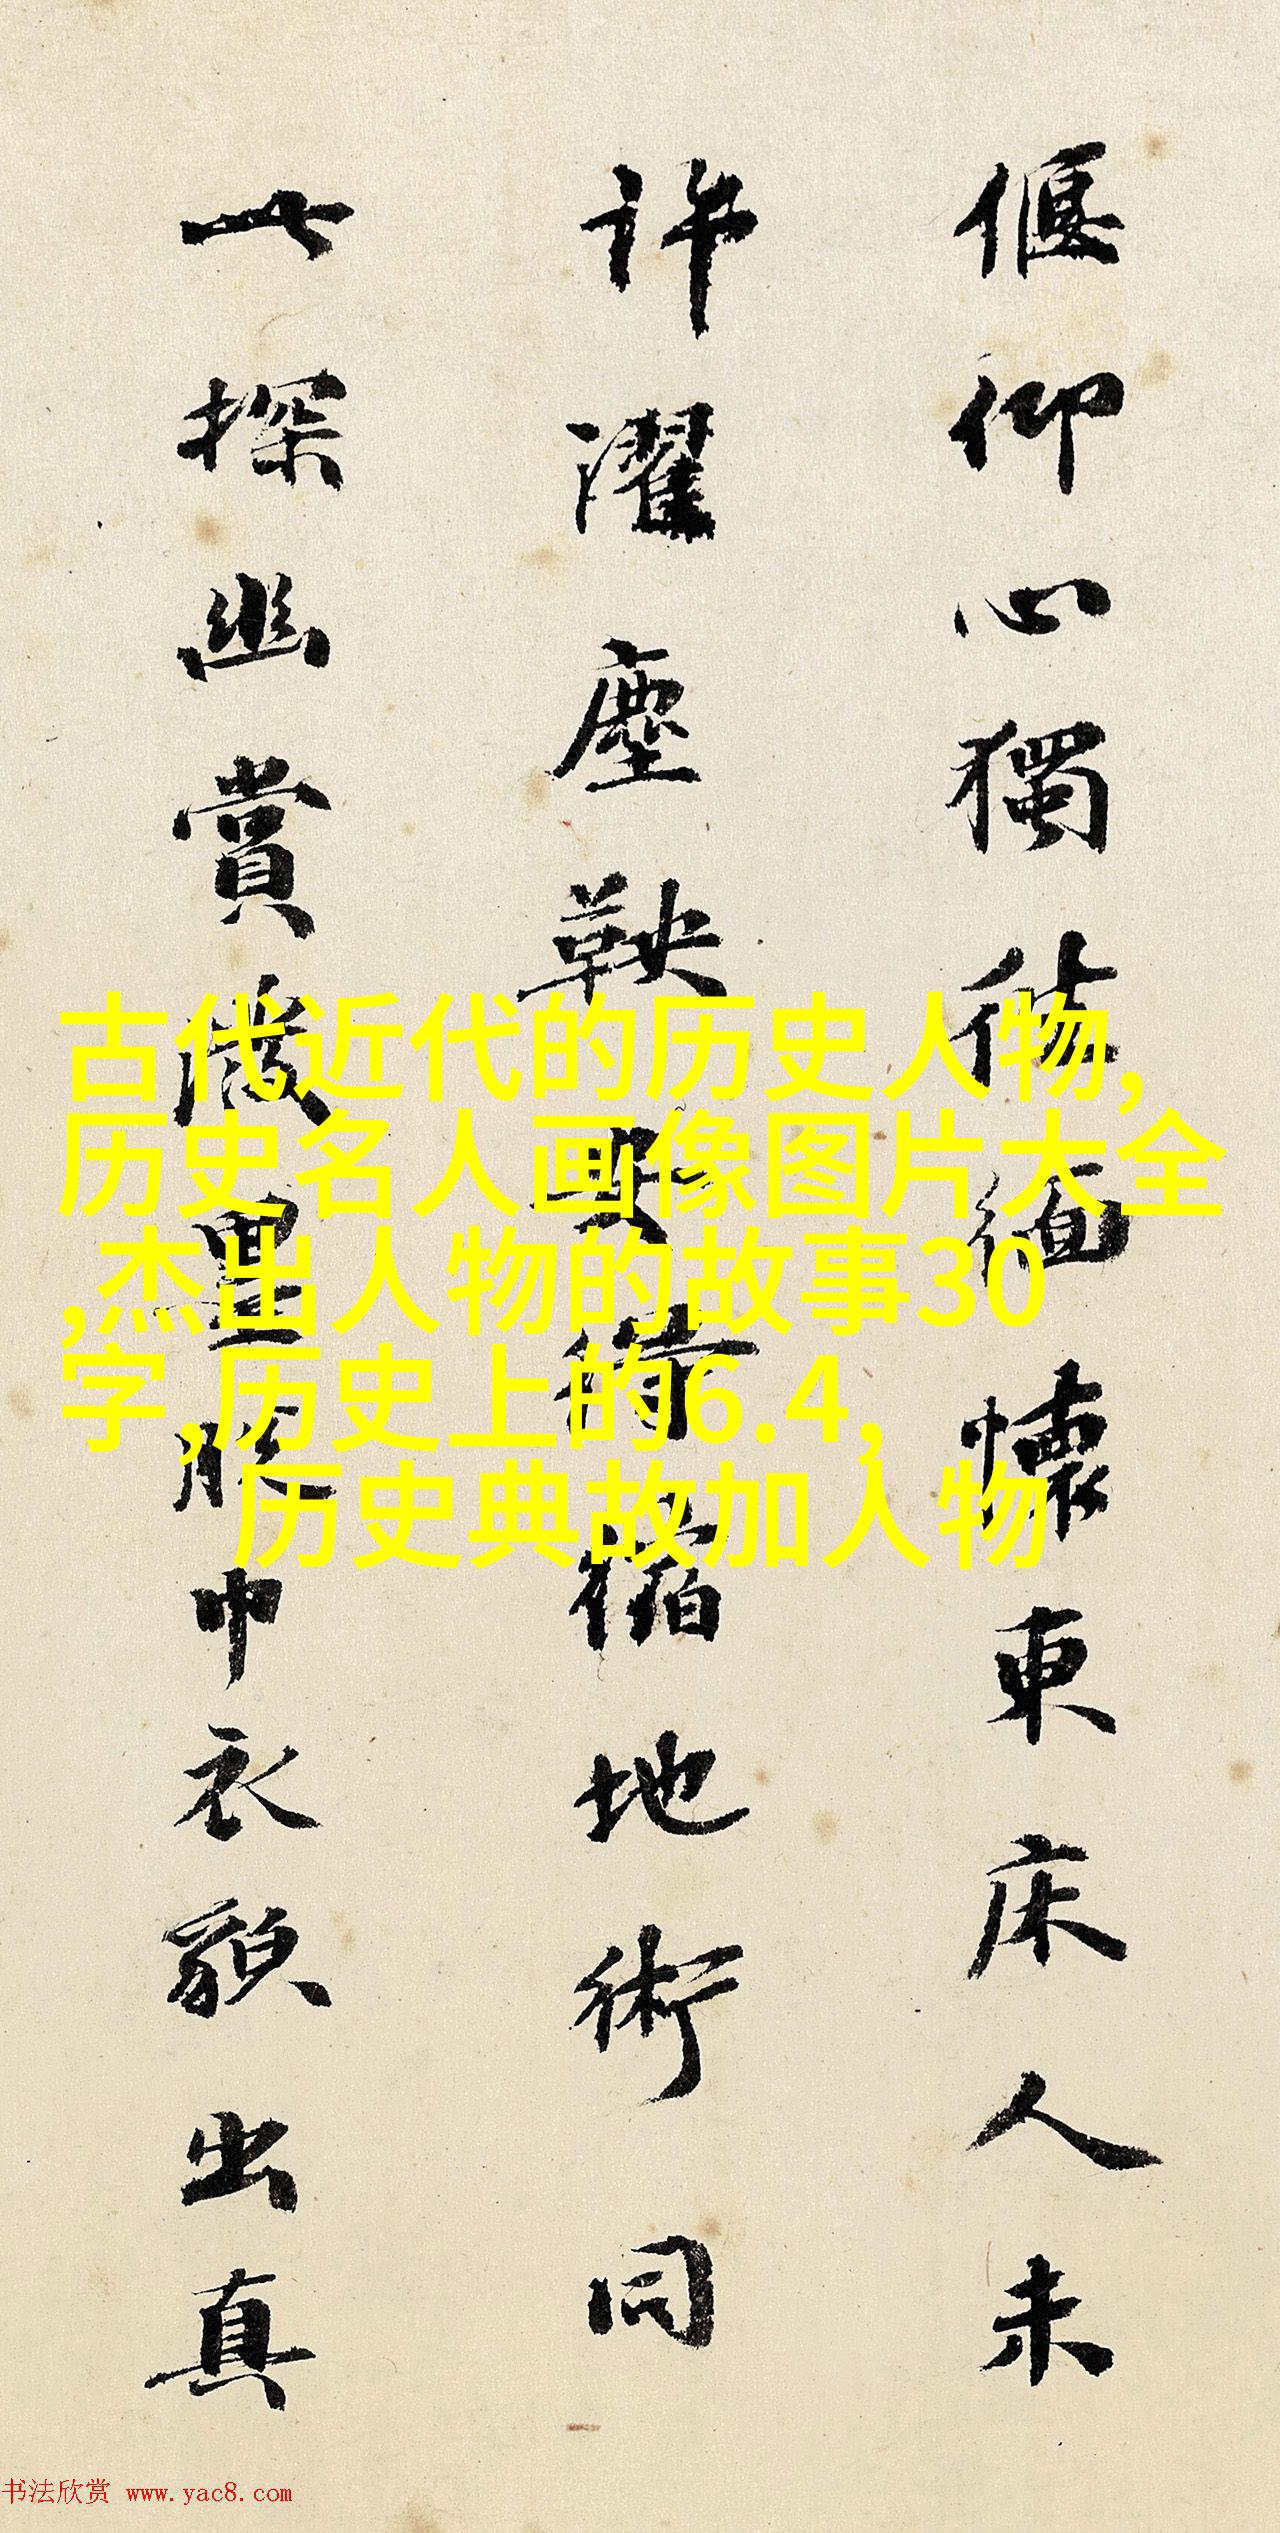 偃仰心獨緬懷東床人未
許濯塵鞅安得縮地術同
一探幽賞脫巾衣貌出真
古代近代的历史人物,
历史名人画像图片大全
,杰出人物的故事30
字,历史上的6.4,
历史典故加人物
书法欣赏 www.yac8.com